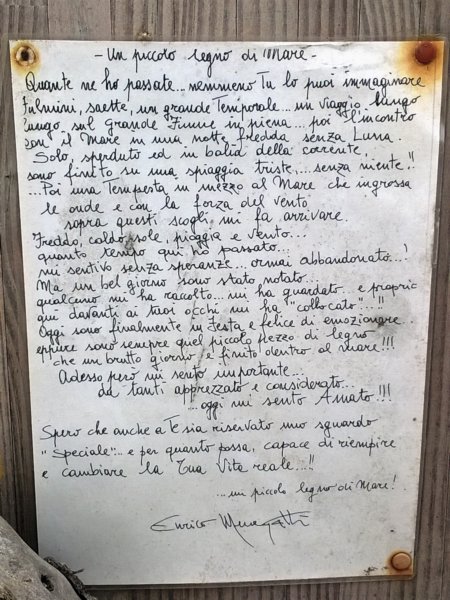 - Un piccolo legno di Mare -
Quante ne ho passate... nemmeno Tu lo puoi immaginare
Fulmini, saette, un grande Temporale... un viaggio lungo
lungo, sul Grande Fiume in piena... poi l'incontro
con il Mare in una notte fredda senza Luna.
Solo, sperduto ed in balia della corrente,
sono finito su una spiaggia triste,... senza niente..!!
...Poi una Tempesta in mezzo al Mare che ingrossa
le onde e con la forza del vento
sopra questi scogli mi fa arrivare.
Freddo, caldo, sole, pioggia e vento...
quanto tempo qui ho passato...
mi sentivo senza speranze... ormai abbandonato...!
Ma un bel giorno sono stato notato...
qualcuno mi ha raccolto... mi ha guardato... e proprio
qui davanti ai tuoi occhi mi ha "collocato"..!!
Oggi sono finalmente in festa e felice di emozionare
eppure sono sempre quel piccolo pezzo di legno
che un brutto giorno è finito dentro al mare!!!
Adesso però mi sento importante...
da tanti apprezzato e considerato...
...oggi mi sento Amato!!!
Spero che anche a Te sia riservato uno sguardo
"Speciale"... e per quanto possa, capace di riempire
e cambiare la Tua Vita reale...!!
...un piccolo legno di Mare!
Enrico Menegatti